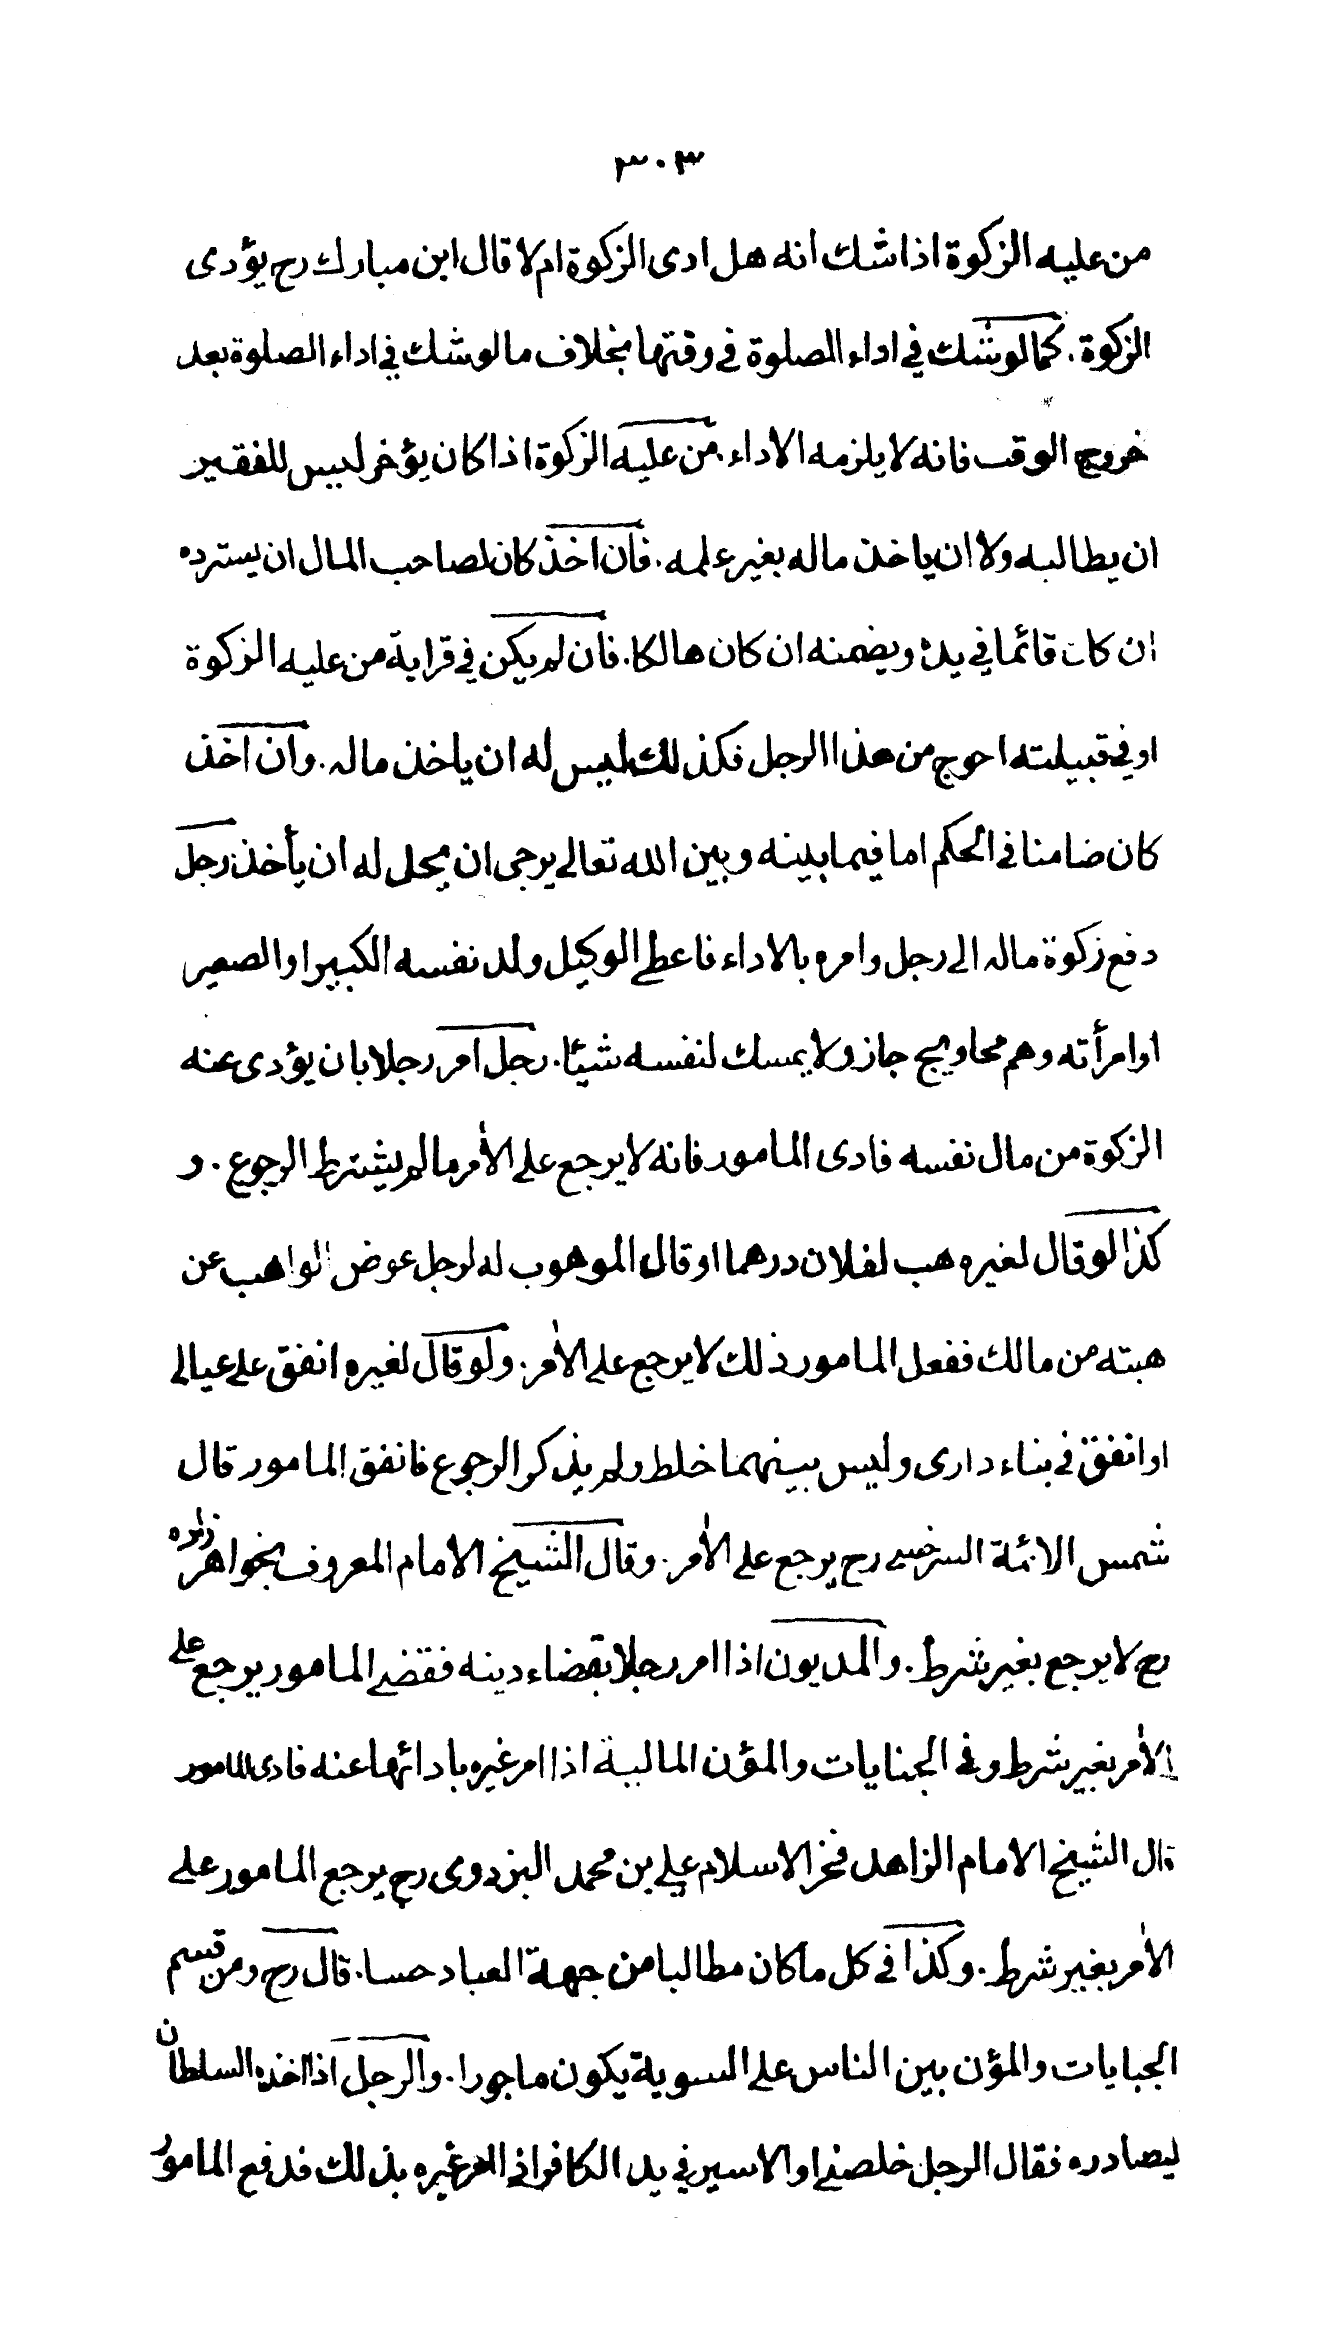 ٣٠٣
من عليه الزكوة اذا شك انه هل ادى الزكوة ام لا قال ابن مبارك رح يؤدى
الزكوة . كما لو شك في اداء الصلوة في وقتها بخلاف ما لو شك في اداء الصلوة بعد
خروج الوقت فانه لا يلزمه الاداء . من عليه الزكوة اذا كان يؤخر ليس للفقير
ان يطالبه ولا ان ياخذ ماله بغير علمه . فان اخذ كان لصاحب المال ان يسترده
ان كان قائما في يده ويضمنه ان كان هالكا . فان لم يكن في قرابة من عليه الزكوة
او في قبيلته احوج من هذا الرجل فكذلك ليس له ان ياخذ ماله . وان اخذ
كان ضامنا في الحكم اما فيما بينه وبين الله تعالى يرجى ان يحل له ان يأخذ رجل
دفع زكوة ماله الى رجل وامره بالاداء فاعطى الوكيل ولد نفسه الكبير او الصغير
او امرأته وهم محاويج جاز ولا يمسك لنفسه شيئا . رجل امر رجلا بان يؤدى عنه
الزكوة من مال نفسه فادى المامور فانه لا يرجع على الأمر ما لم يشترط الرجوع . و
كذا لو قال لغيره هب لفلان درهما او قال الموهوب له لرجل عوض الواهب عن
هبته من مالك ففعل المامور ذلك لا يرجع على الأمر . ولو قال لغيره انفق على عيالى
او انفق في بناء دارى وليس بينهما خلط ولم يذكر الرجوع فانفق المامور قال
شمس الائمة السرخسى رح يرجع على الأمر . وقال الشيخ الامام المعروف بخواهر زاده
رح لا يرجع بغير شرط . والمديون اذا امر رجلا بقضاء دينه فقضى المامور يرجع على
الأمر بغير شرط وفى الجنايات والمؤن المالية اذا امر غيره بادائها عنه فادى المامور
قال الشيخ الامام الزاهد فخر الاسلام على بن محمد البزدوى رح يرجع المامور على
الأمر بغير شرط . وكذا فى كل ما كان مطالبا من جهة العباد حسا . قال رح ومن قسم
الجبايات والمؤن بين الناس على السوية يكون ماجورا . والرجل اذا اخذه السلطان
ليصادره فقال الرجل خلصنى او الاسير في يد الكافر اذا امر غيره بذلك فدفع المامور